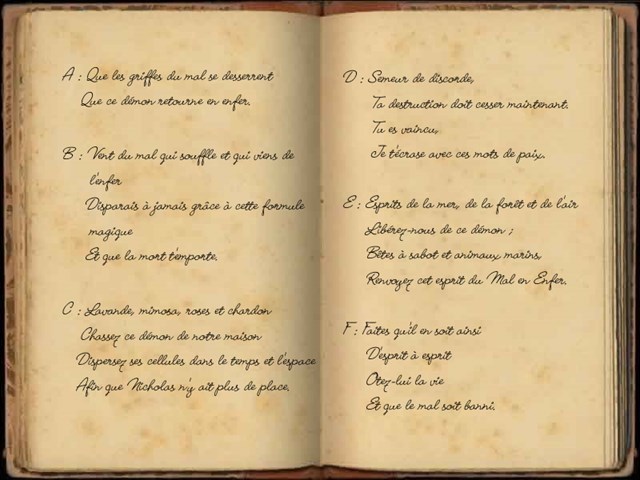 A : Que les griffes du mal se desserrent
Que ce démon retourne en enfer.
B : Vent du mal qui souffle et qui viens de
l'enfer
Disparais à jamais grâce à cette formule
magique
Et que la mort t'emporte.
C : Lavande, mimosa, roses et chardon
Chassez ce démon de notre maison
Dispersez ses cellules dans le temps et l'espace
Afin que Nicholas n'y ait plus de place.
D : Semeur de discorde,
Ta destruction doit cesser maintenant.
Tu es vaincu,
Je t'écrase avec ces mots de paix.
E : Esprits de la mer, de la forêt et de l'air
Libérez-nous de ce démon ;
Bêtes à sabot et animaux marins,
Renvoyez cet esprit du Mal en Enfer.
F : Faites qu'il en soit ainsi
D'esprit à esprit
Otez-lui la vie
Et que le mal soit banni.